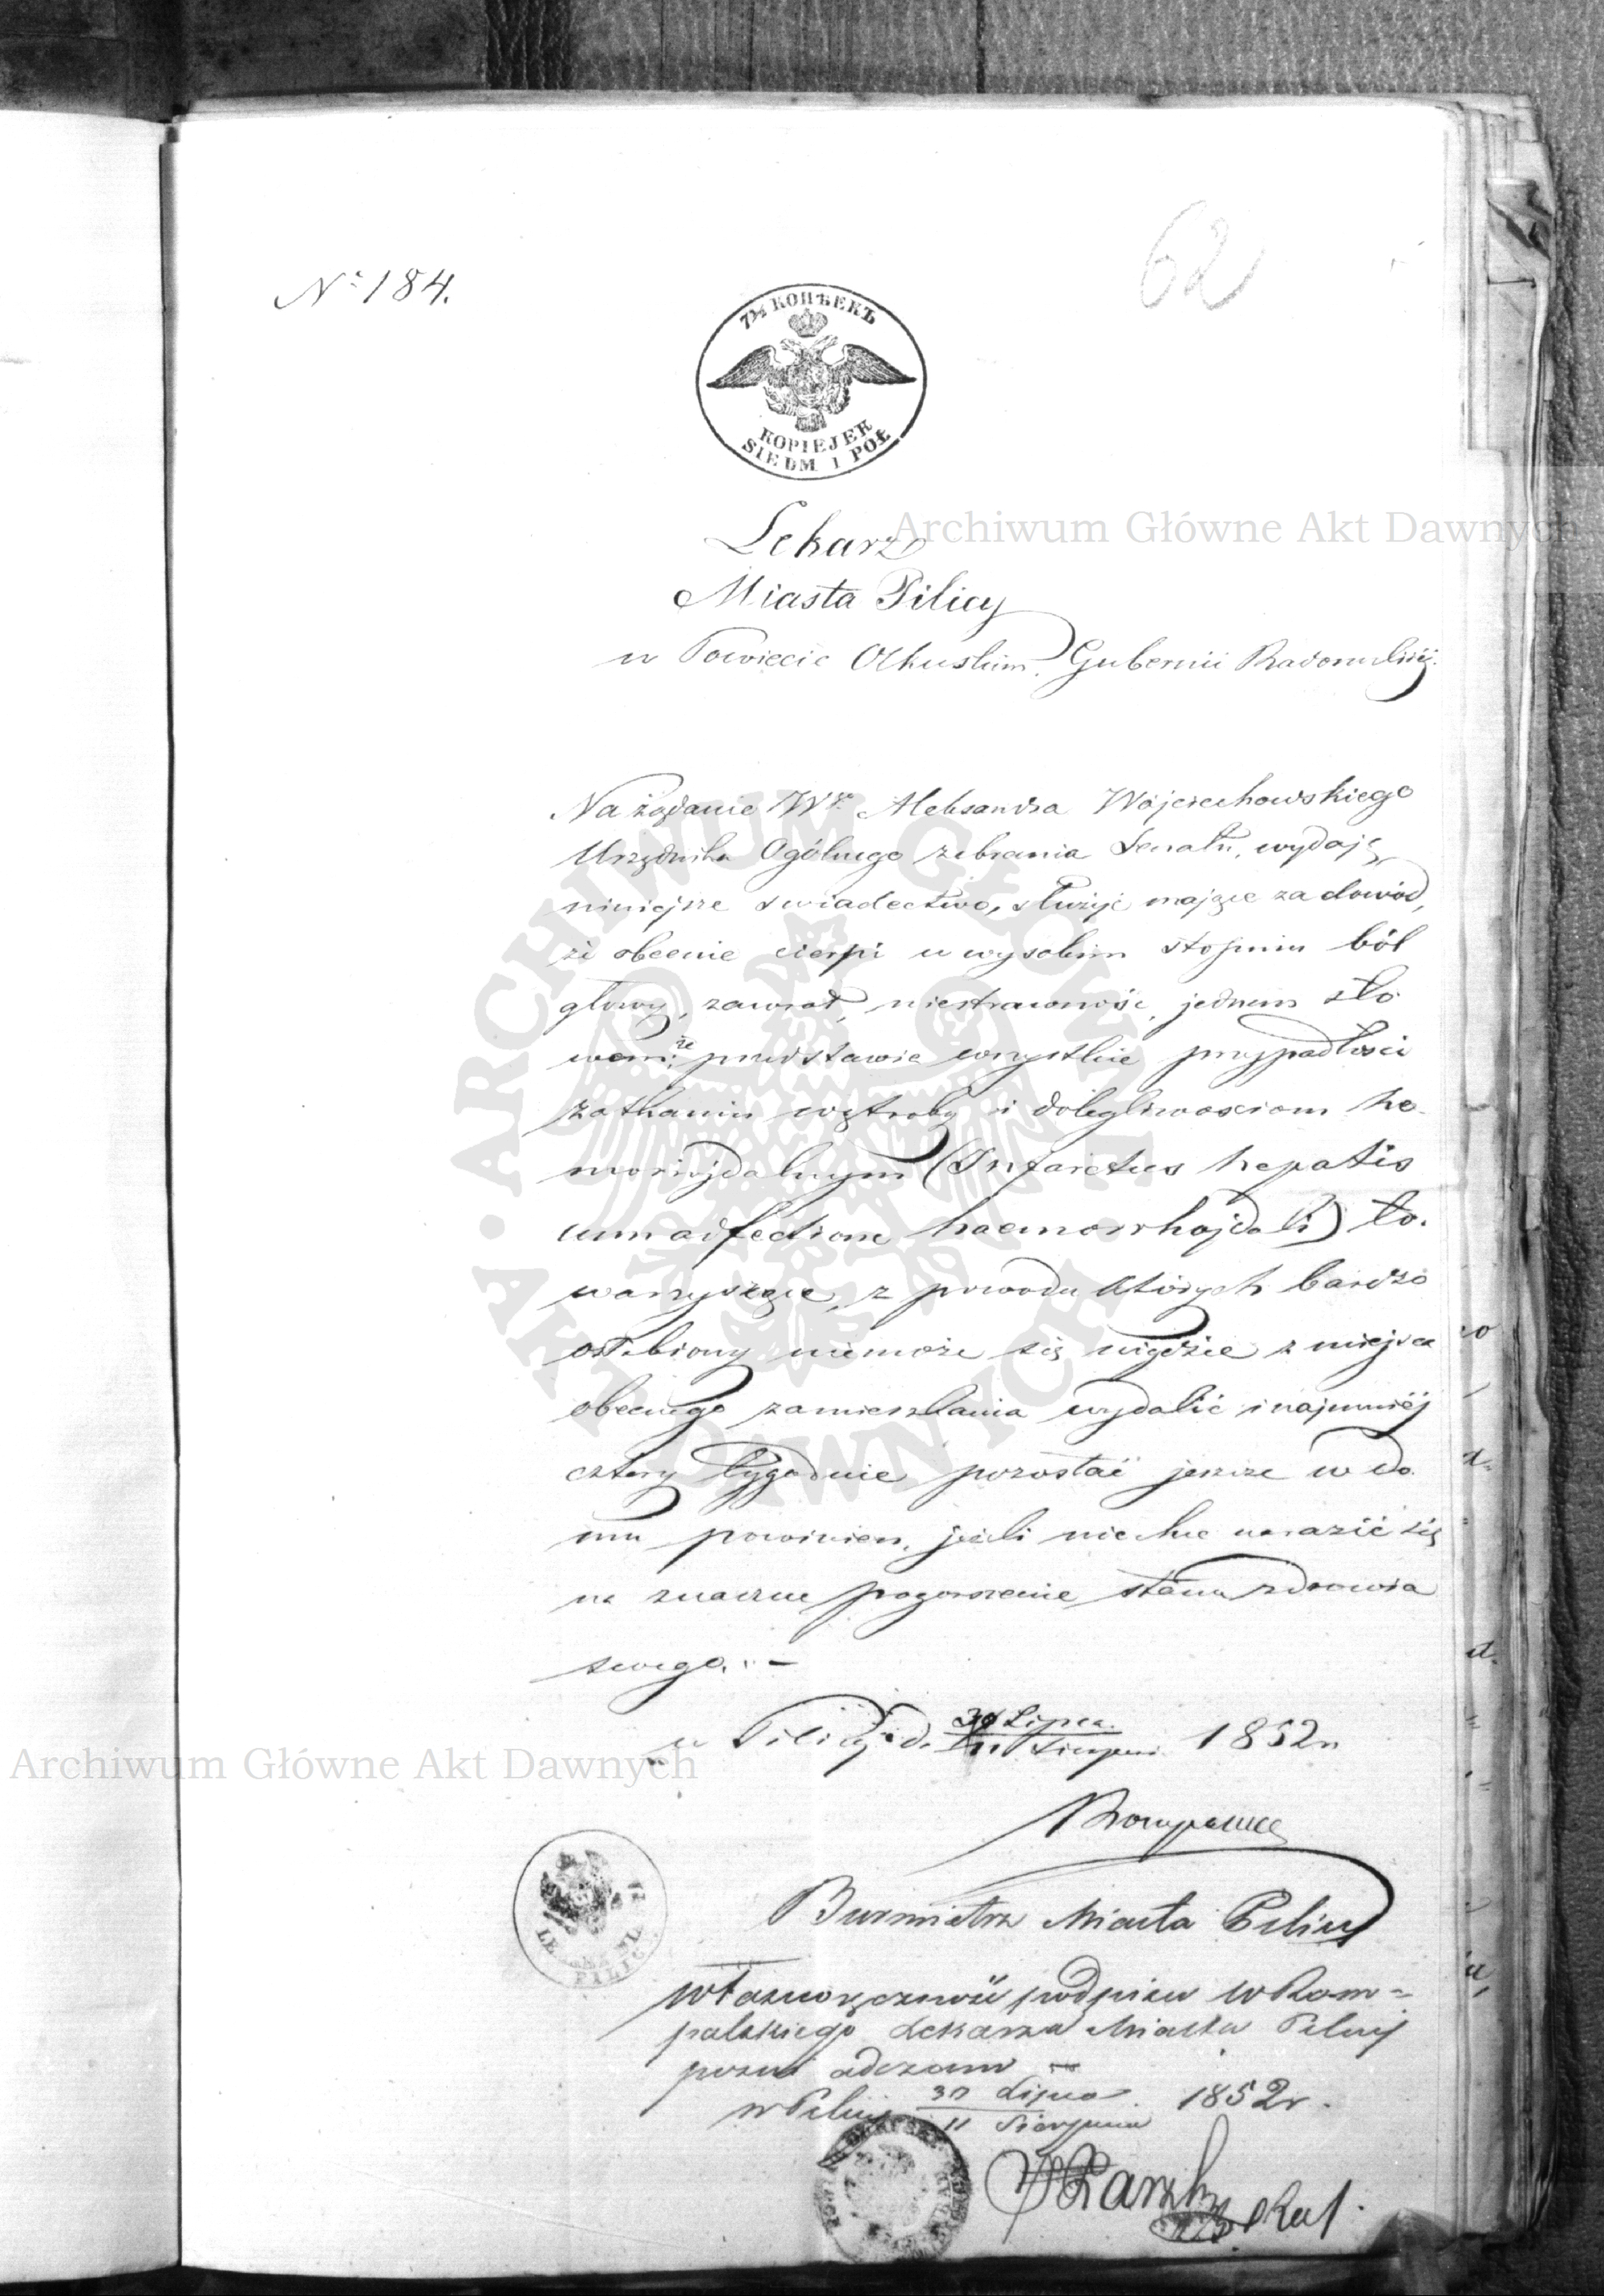 62
No 184.
7½ КОПѢЕКЪ
KOPIEJEK
SIEDM I POŁ
Archiwum Główne Akt Dawnych
Lekarz
Miasta Pilicy
w Powiecie Olkuskim Gubernii Radomskiéj.
Na żądanie Wgo Aleksandra Wojciechowskiego
Urzędnika Ogólnego zebrania Senatu, wydaję
niniejsze swiadectwo, służyć mające za dowód,
że obecnie cierpi w wysokim stopniu ból
głowy, zawrót, niestrawność, jednem sło
wem: że przedstawia wszystkie przypadłości
zatkaniu wątroby i dolegliwosciom he-
morojdalnym (Infarctus hepatis
cum adfectione haemorrhojdali) to-
warzyszące, z powodu których bardzo
osłabiony niemoże się nigdzie z miejsca
obecnego zamieszkania wydalić i najmniéj
cztery tygodnie pozostać jeszcze w do
mu powinien, jeżli niechce narazić się
na znaczne pogorszenie stanu zdrowia
swego. –
w Pilicy d. 30 Lipca / 11 Sierpnia 1852 r.
Archiwum Główne Akt Dawnych
Burmistrz Miasta Pilicy
własnoręczność podpisu W Rom=
palskiego Lekarza Miasta Pilicy
poświadczam –
w Pilicy 30 Lipca / 11 Sierpnia 1852 r.
PILICY
ARCHIWUM GŁÓWNE AKT DAWNYCH